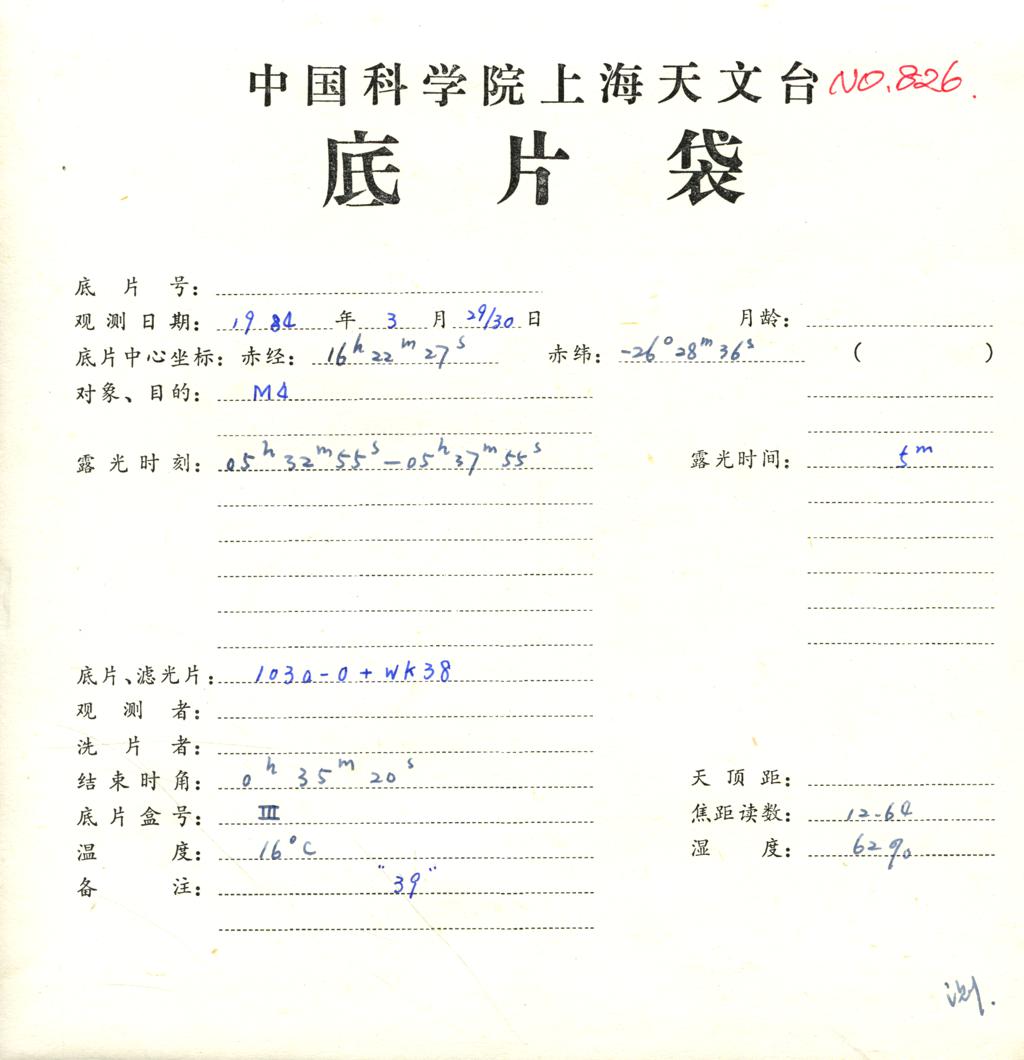 中国科学院上海天文台 NO.826.
底片袋
底片号：
观测日期：1984年3月29/30日 月龄：
底片中心坐标：赤经：16h22m27s 赤纬：-26°28m36s ( )
对象、目的：M4
露光时刻：05h32m55s-05h37m55s 露光时间：5m
底片、滤光片：103a-0+WK38
观测者：
洗片者：
结束时角：0h35m20s 天顶距：
底片盒号：III 焦距读数：12.64
温度：16°C 湿度：62%
备注："39"
测.